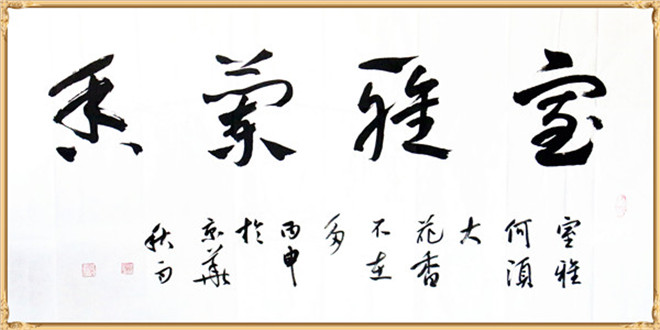 室雅蘭香
室雅
何須
大
花香
不在
多
丙申
於
京華
秋句